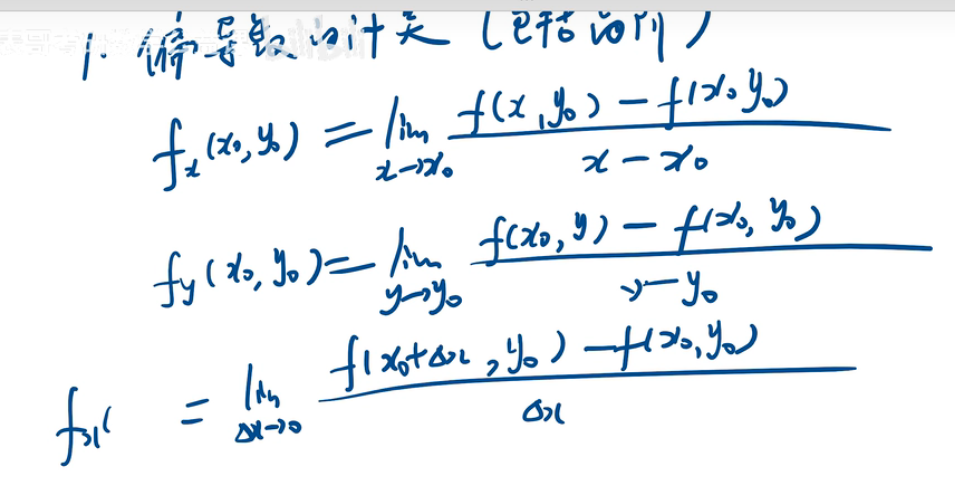 1. 偏导数的计算(包括访问)
f_x(x₀,y₀) = lim_{x→x₀} \frac{f(x,y₀) - f(x₀,y₀)}{x - x₀}
f_y(x₀,y₀) = lim_{y→y₀} \frac{f(x₀,y) - f(x₀,y₀)}{y - y₀}
f_x' = lim_{Δx→0} \frac{f(x₀+Δx,y₀) - f(x₀,y₀)}{Δx}